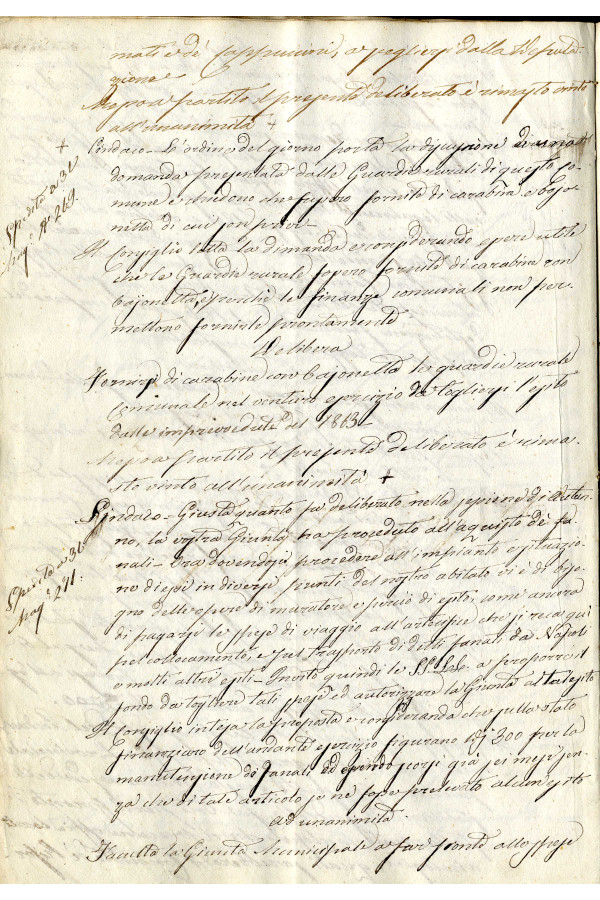 mati e de' Cappuccini, a scegliersi dalla Deputa-
zione
Messo a partito il presente deliberato è rimasto vinto
all'unanimità +
Sindaco - L'ordine del giorno porta la discussione di una
domanda presentata dalle Guardie rurali di questo Co-
mune e chiedono che fussero fornite di carabina e bajo-
netta di cui son privi -
Il Consiglio letta la dimanda e considerando essere utile
che le Guardie rurale fossero fornite di carabina con
bajonetta, e perchè le finanze comunali non per-
mettono fornirle prontamente
Delibera
Fornirsi di carabine con bajonetta le guardie rurale
Comunale nel venturo esercizio da togliersi l'esito
dalle imprivedute del 1863 -
Messo a partito il presente deliberato è rima-
sto vinto all'unanimità +
Spedito a 31
Mag.º Nº 269.
Sindaco - Giusta quanto fu deliberato nella sessione di autun-
no, la vostra Giunta ha proceduto all'aquisto de' fa-
nali - Ora dovendosi procedere all'impianto e situazio-
ne di essi in diverse punti del nostro abitato vi è di biso-
gno delle opere di muratore e perciò di esito, come ancora
di pagarsi le spese di viaggio all'artefice che si recò quì
pel collocamento, e pel trasporto di detti fanali da Napoli
e molti altri esiti - Invito quindi le SS. LL. a proporre il
fondo da togliersi tali spese ed autorizzare la Giunta al tal esito
Il Consiglio intesa la proposta e considerando che sullo stato
finanziero dell'andante esercizio figurano D.i 300 per la
manutenzione di fanali ed essendo scorsi già sei mesi sen-
za che di tale articolo se ne fosse prelevato alcun esito
ad unanimità
Facolta la Giunta Municipale a far fronte alle spese
Spedito a 31
Mag.º 271.